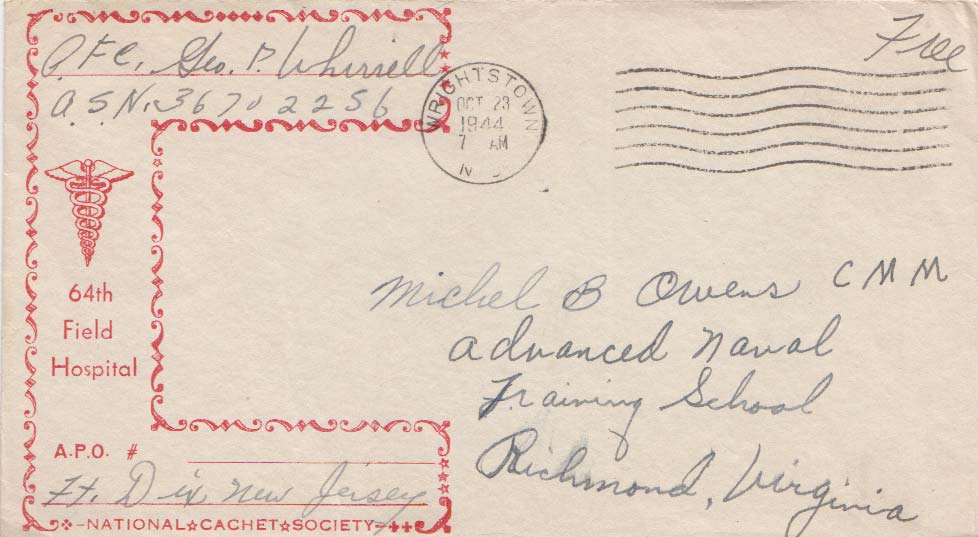 Free
P.F.C. Geo. P. Whirrell
A.S.N. 36702256
WRIGHTSTOWN
OCT 23
1944
7 AM
N
64th
Field
Hospital
Michel B Owens CMM
Advanced Naval
Training School
Richmond, Virginia
A.P.O. #
Ft. Dix New Jersey
NATIONAL☆CACHET☆SOCIETY